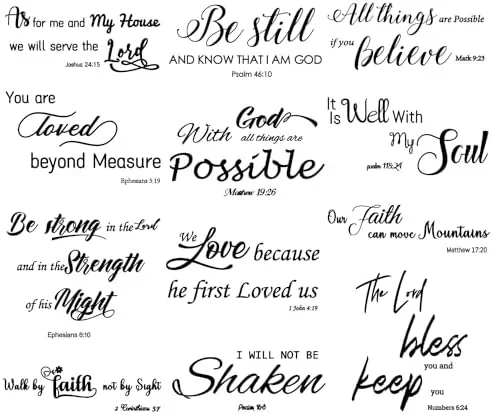 As for me and My House
we will serve the Lord
Joshua 24:15
Be still
AND KNOW THAT I AM GOD
Psalm 46:10
All things are Possible
if you believe
Mark 9:23
You are
loved
beyond Measure
Ephesians 3:19
With God
all things are
Possible
Matthew 19:26
It Is Well With
My Soul
psalm 118:24
Be strong in the Lord
and in the Strength
of his Might
Ephesians 6:10
We Love because
he first Loved us
1 John 4:19
Our Faith
can move Mountains
Matthew 17:20
Walk by faith not by Sight
2 Corinthians 5:7
I WILL NOT BE
Shaken
Psalm 16:8
The Lord
bless
you and
keep you
Numbers 6:24